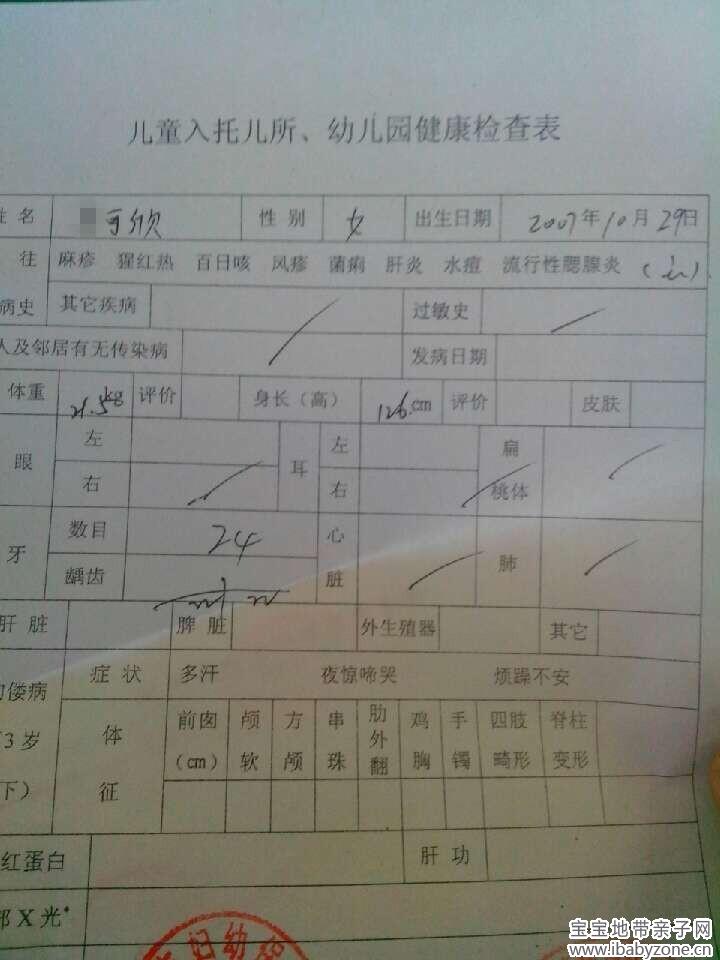 儿童入托儿所、幼儿园健康检查表
姓名 可欣 性别 女 出生日期 2007年10月29日
往 麻疹 猩红热 百日咳 风疹 菌痢 肝炎 水痘 流行性腮腺炎
病史 其它疾病 过敏史
人及邻居有无传染病 发病日期
体重 21.5kg 评价 身长(高) 126cm 评价 皮肤
眼 左 右 耳 左 右 扁桃体
牙 数目 24 龋齿 心脏 肺
肝脏 脾脏 外生殖器 其它
佝偻病 症状 多汗 夜惊啼哭 烦躁不安
3岁
下) 体征 前囟(cm) 颅软 方颅 串珠 肋外翻 鸡胸 手镯 四肢畸形 脊柱变形
红蛋白 肝功
部X光*
妇幼
宝宝地带亲子网
www.ibabyzone.cn